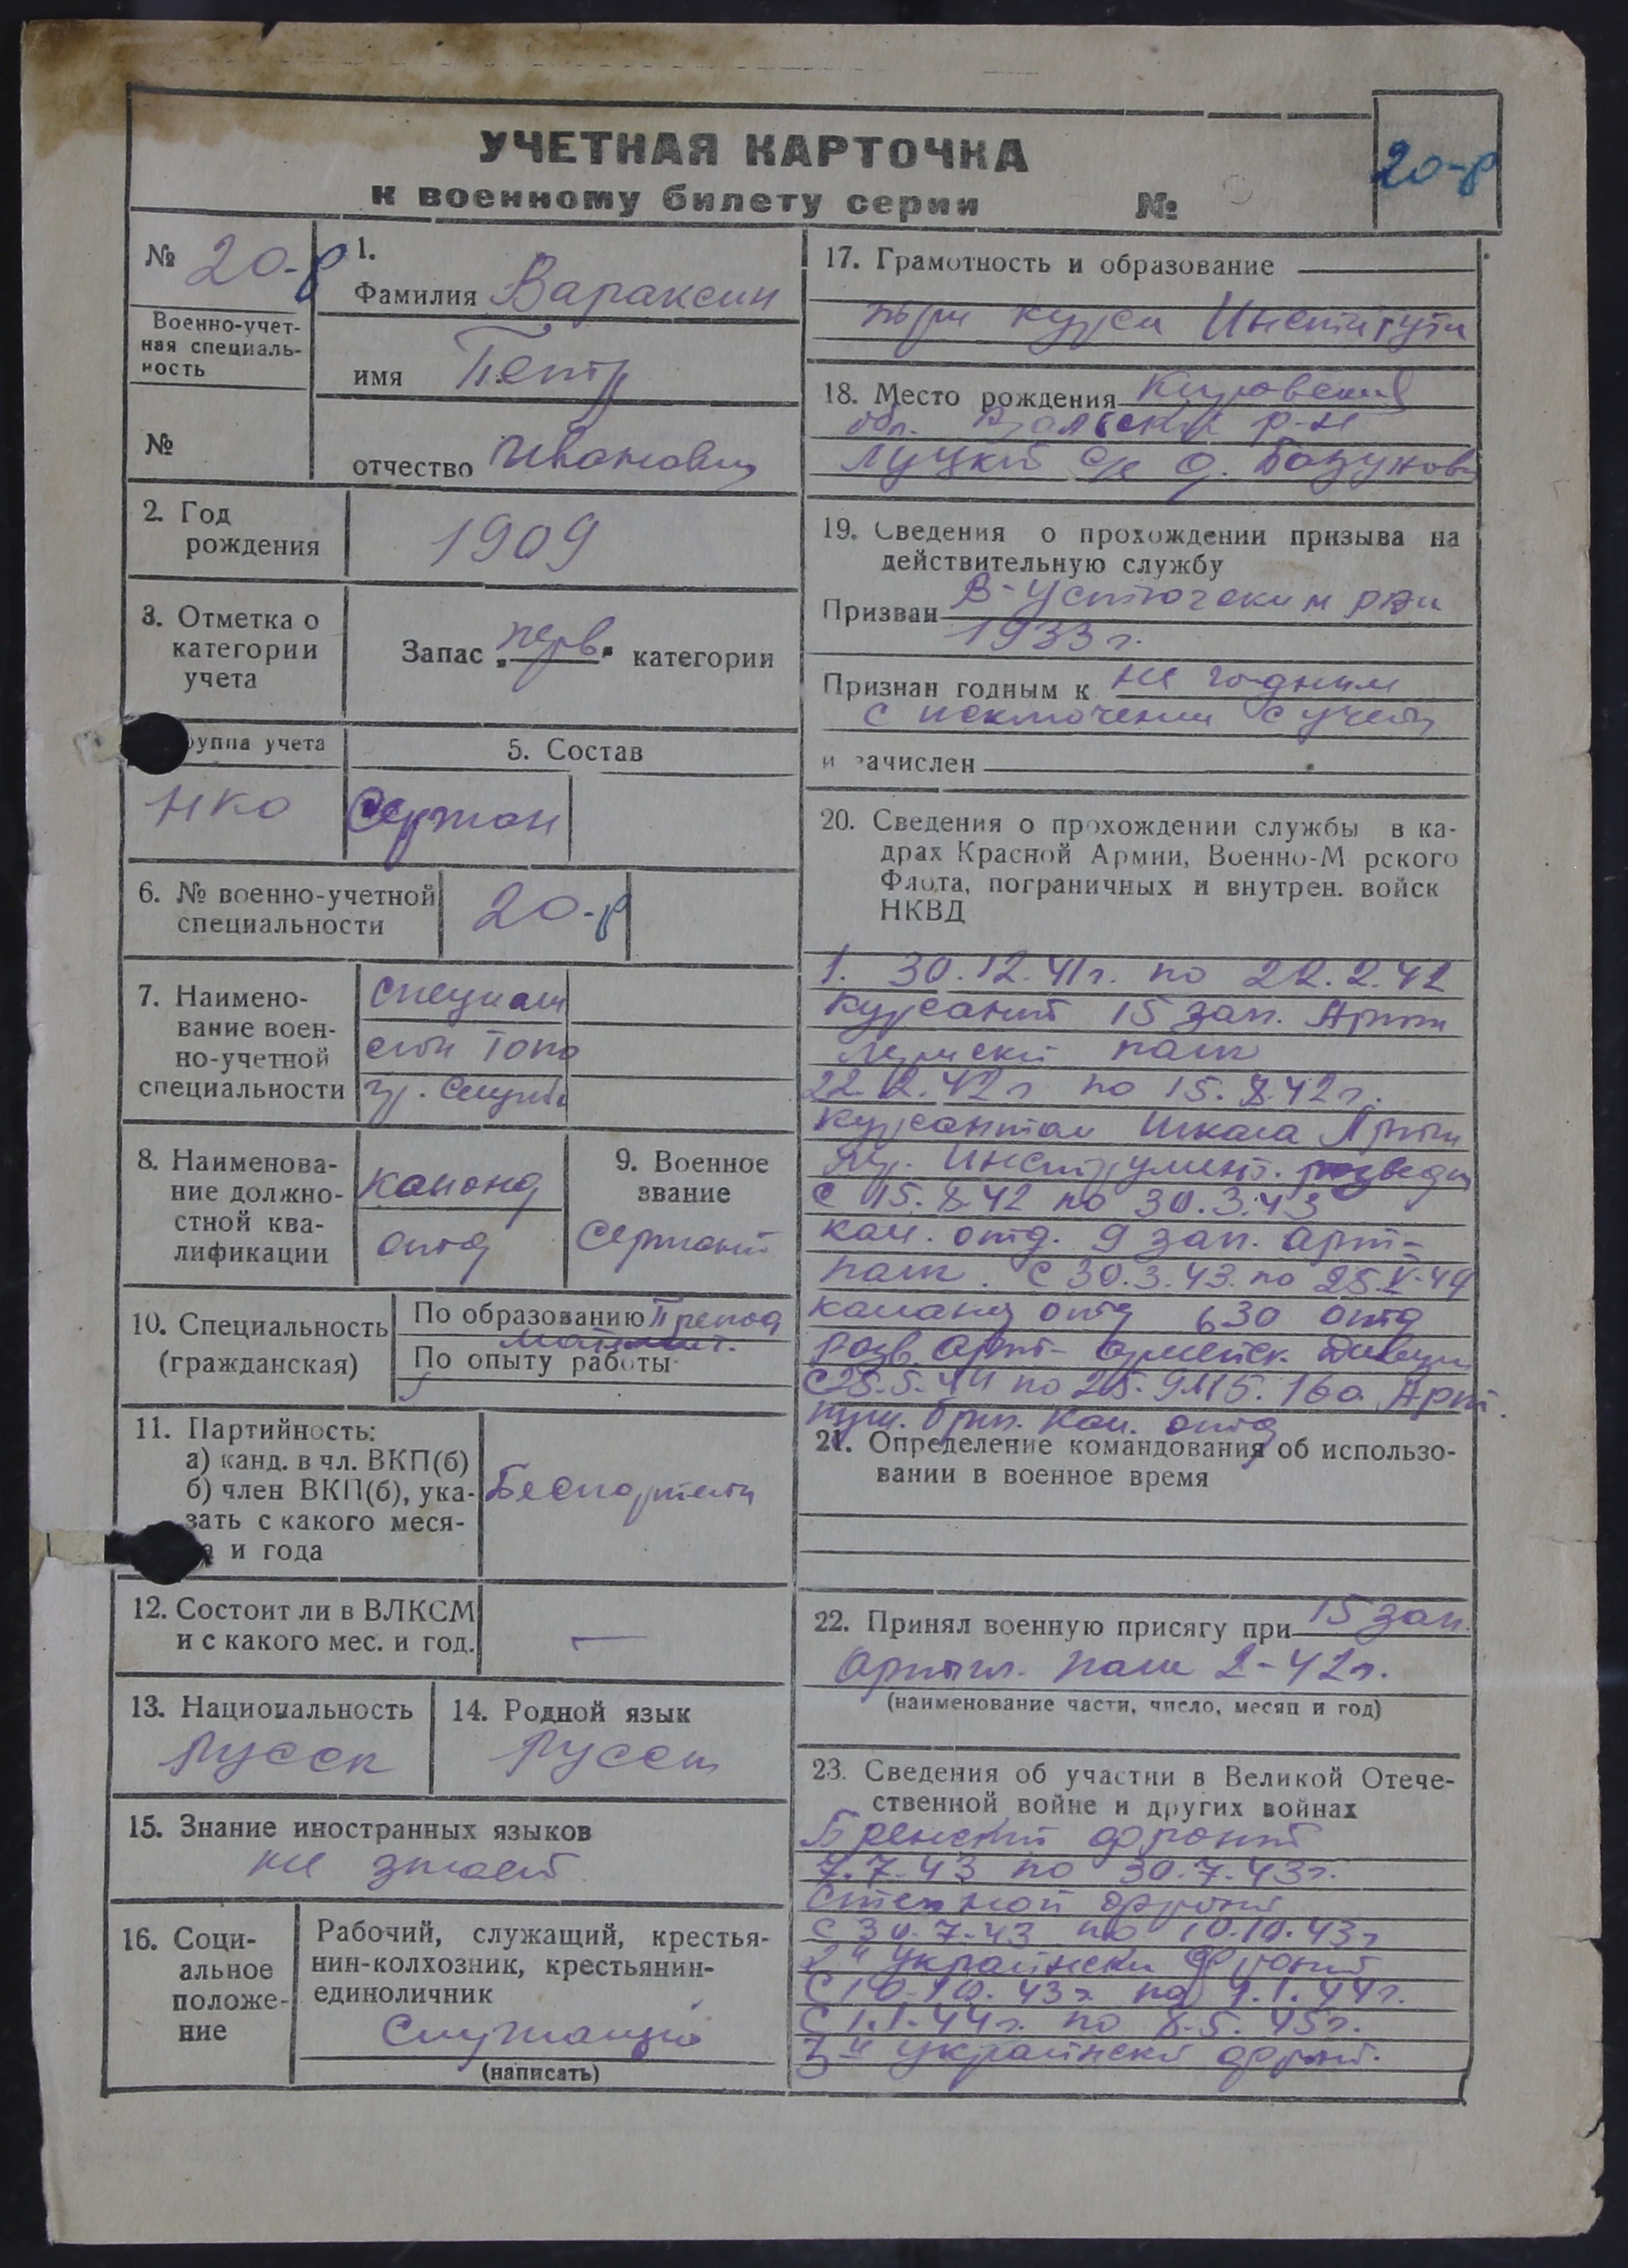 УЧЕТНАЯ КАРТОЧКА
к военному билету серии №
20-р
№ 20-р
Военно-учет-
ная специаль-
ность
№
1.
Фамилия Вараксин
имя Петр
отчество Иванович
2. Год
рождения
1909
3. Отметка о
категории
учета
Запас „перв." категории
руппа учета
НКО
5. Состав
Сержан
6. № военно-учетной
специальности
20-р
7. Наимено-
вание воен-
но-учетной
специальности
Специали
сты Топо
гр. Службы
8. Наименова-
ние должно-
стной ква-
лификации
Команд
отд
9. Военное
звание
Сержант
10. Специальность
(гражданская)
По образованию Препод
математ.
По опыту работы
11. Партийность:
а) канд. в чл. ВКП(б)
б) член ВКП(б), ука-
зать с какого меся-
а и года
Беспартийн
12. Состоит ли в ВЛКСМ
и с какого мес. и год.
—
13. Национальность
Русск
14. Родной язык
Русск
15. Знание иностранных языков
не знает
16. Соци-
альное
положе-
ние
Рабочий, служащий, крестья-
нин-колхозник, крестьянин-
единоличник
Служащий
(написать)
17. Грамотность и образование
три курса Института
18. Место рождения Кировский
обл. р-н
Луцкий с/с д.
19. Сведения о прохождении призыва на
действительную службу
Призван В-Устюгским рвк
1933 г.
Признан годным к не годным
с исключением с учета
и зачислен
20. Сведения о прохождении службы в ка-
драх Красной Армии, Военно-М рского
Флота, пограничных и внутрен. войск
НКВД
1. 30.12.41г. по 22.2.42
курсант 15 зап. Арти
лерийский полк
22.2.42г по 15.8.42г.
курсантом Школа Арти
лер. Инструмент. разведки
с 15.8.42 по 30.3.43
ком. отд. 9 зап. арт-
полк. с 30.3.43. по 25.V-44
команд отд 630 отд
разв. арт- армейск. дивизи
с 25.5.44 по 25.9.45. 160. Арт.
пуш. бриг. Ком. отд
21. Определение командования об использо-
вании в военное время
22. Принял военную присягу при 15 зап.
Артил. полк 2-42г.
(наименование части, число, месяц и год)
23. Сведения об участии в Великой Отече-
ственной войне и других войнах
Брянский фронт
7.7.43 по 30.7.43г.
Степной фронт
с 30.7.43 по 10.10.43г
2й украински фронт
с 10.10.43г. по 1.1.44г.
с 1.1.44г. по 8.5.45г.
3й украински фронт.